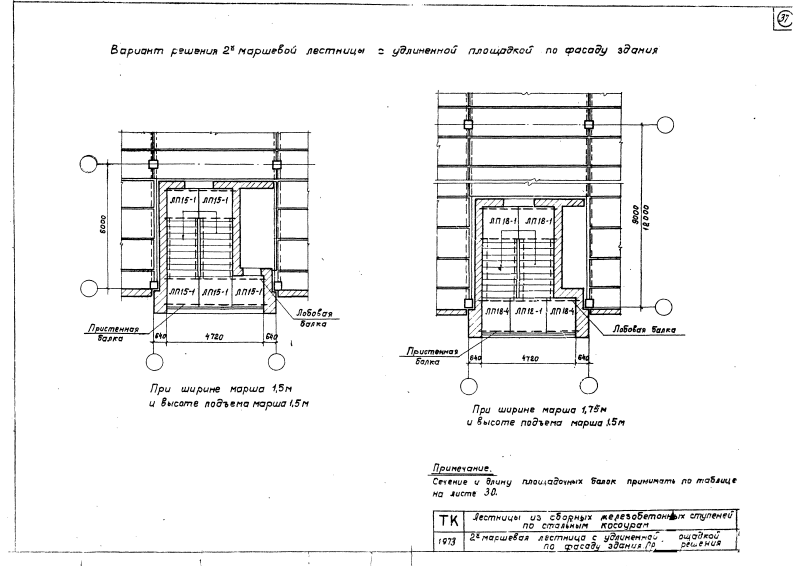 37
Вариант решения 2х маршевой лестницы с удлиненной площадкой по фасаду здания
6000
ЛП15-1 ЛП15-1
ЛП15-1 ЛП15-1 ЛП15-1
Пристенная
балка
Лобовая
балка
640 4720 640
При ширине марша 1,5м
и высоте подъема марша 1,5м
9000
12000
ЛП18-1 ЛП18-1
ЛП18-4 ЛП12-1 ЛП18-4
Пристенная
балка
Лобовая балка
640 4720 640
При ширине марша 1,75м
и высоте подъема марша 1.5м
Примечание.
Сечение и длину площадочных балок принимать по таблице
на листе 30.
ТК
Лестницы из сборных железобетонных ступеней
по стальным косоурам
1973
2х маршевая лестница с удлиненной ощадкой
по фасаду здания решения